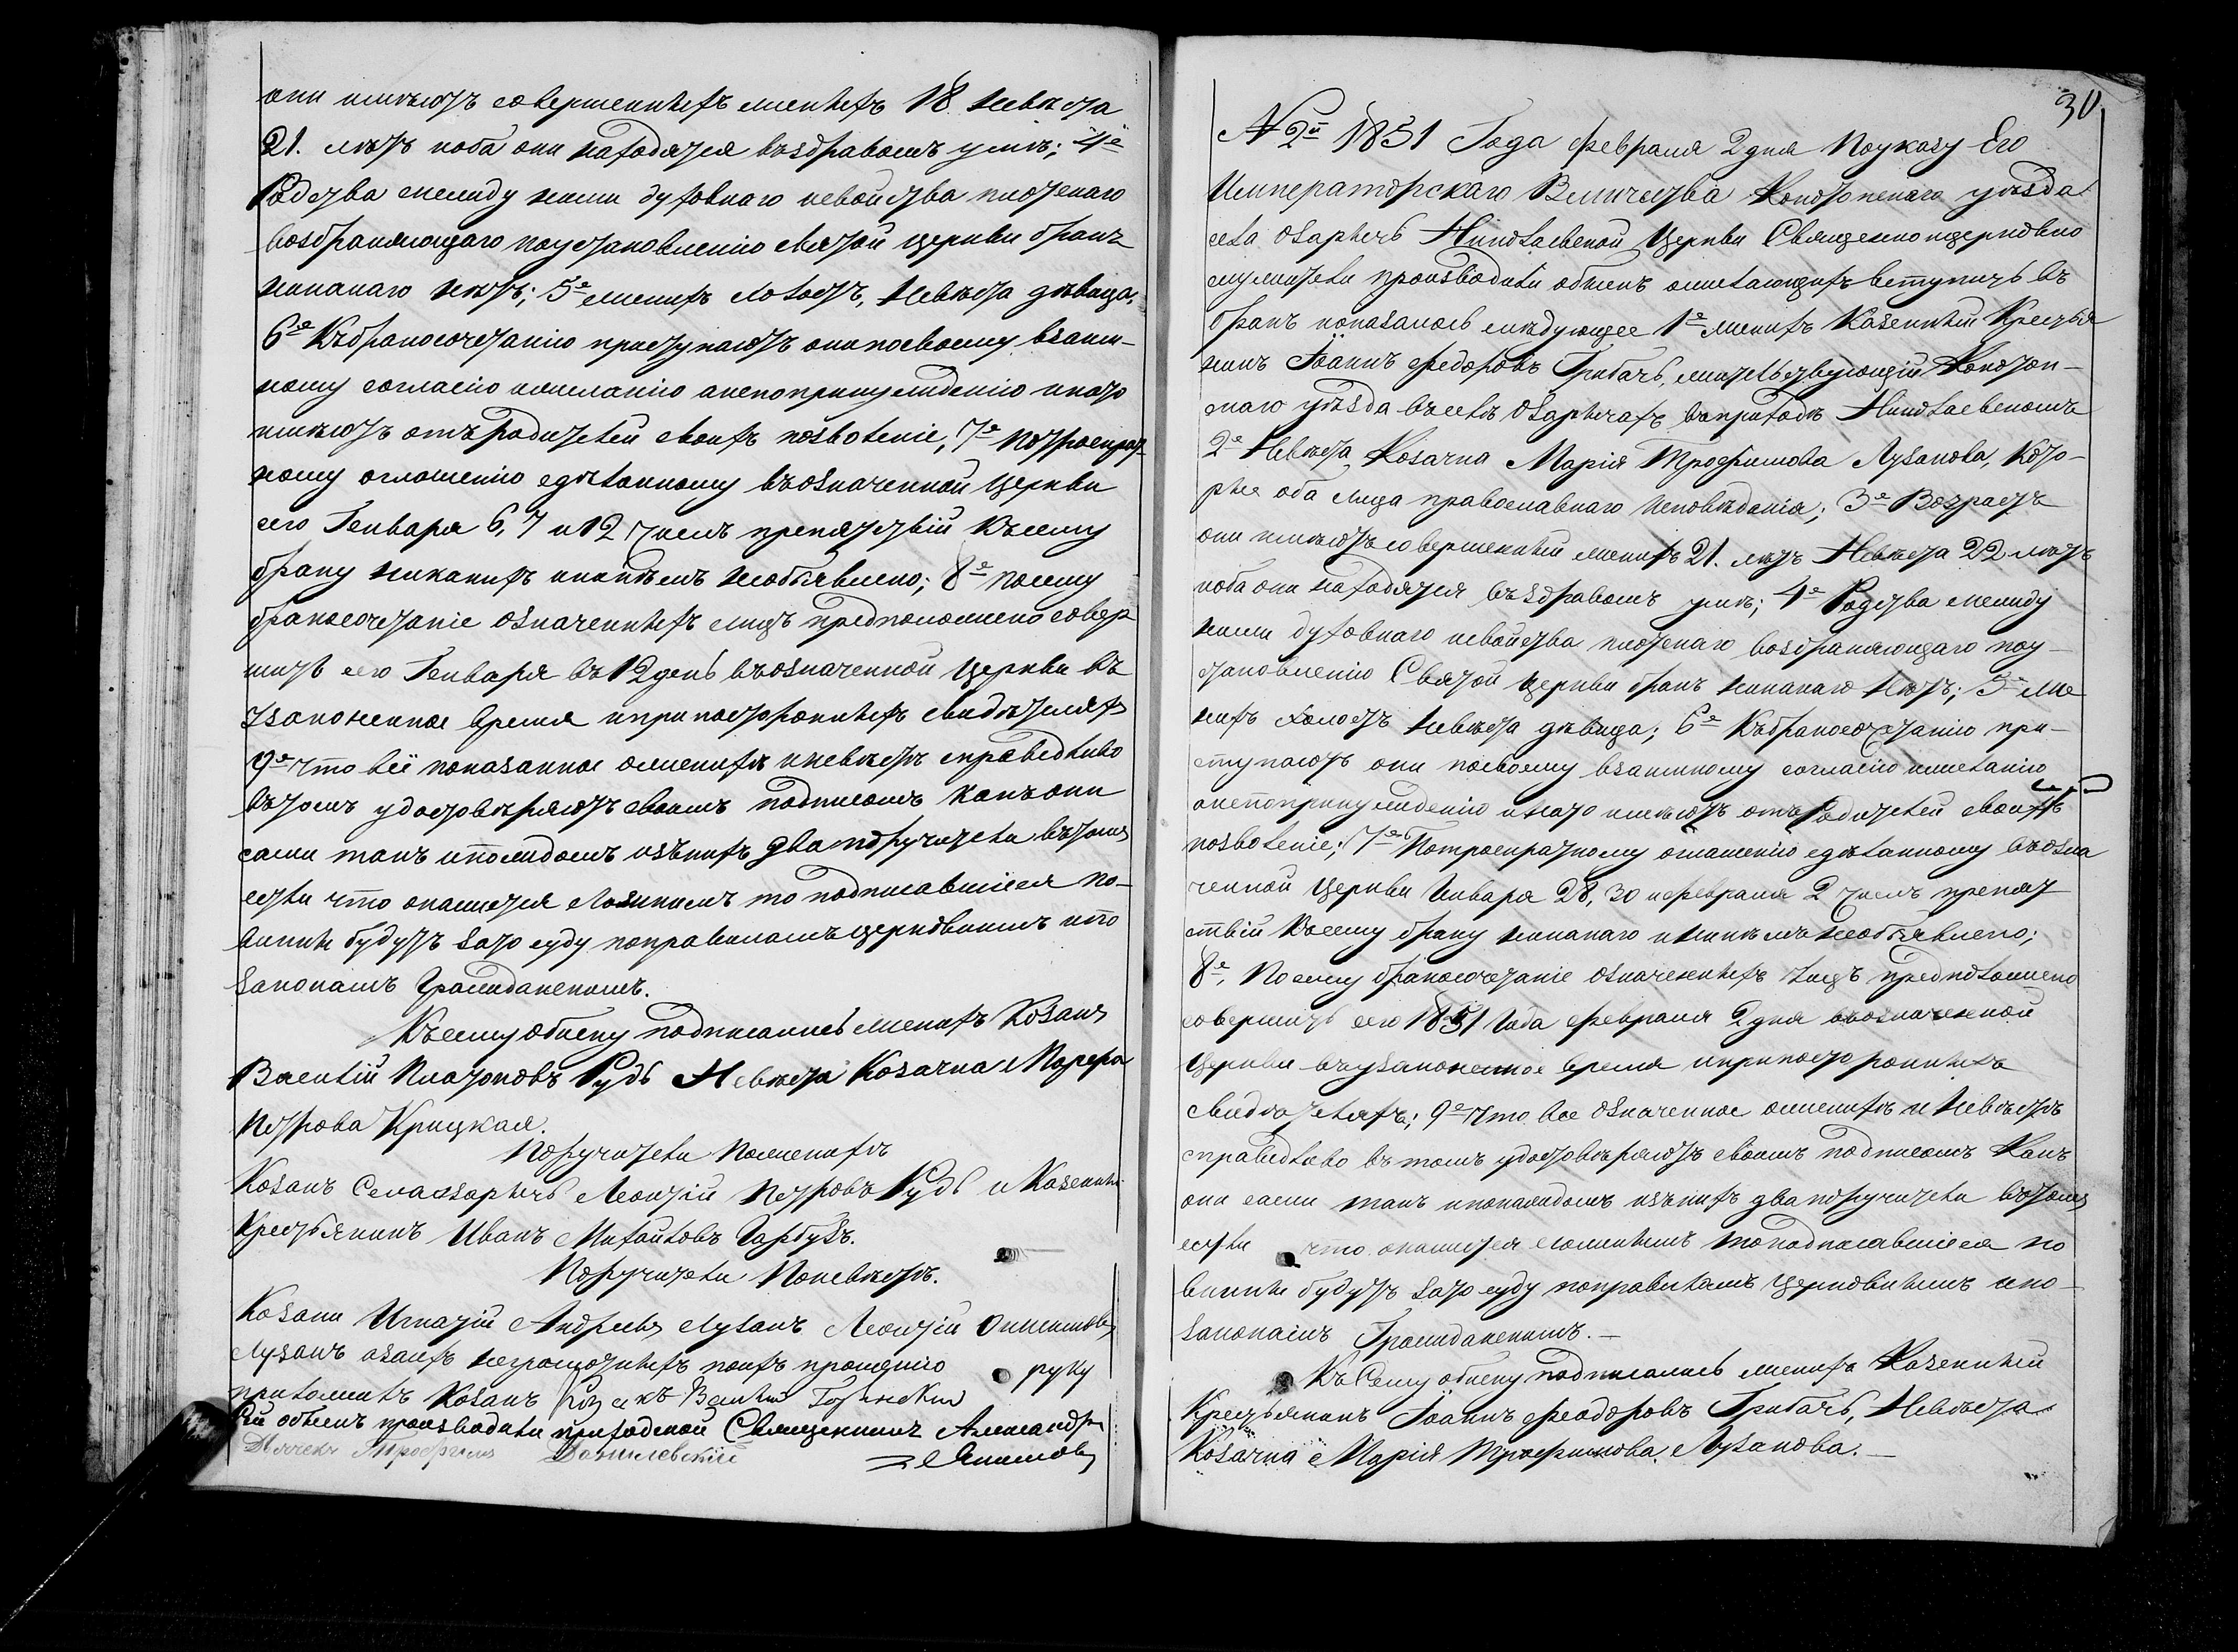 они имѣютъ совершенныхъ женихъ 18 невѣста
21. лѣтъ иоба они находятся въздравомъ умѣ; 4е
Родства между ними духовнаго исвойства плотскаго
возбраняющаго поустановленію святой церкви бракъ
никакаго нѣтъ; 5е женихъ холостъ, невѣста дѣвица,
6е Къбракосочетанію приступаютъ они посвоему взаим-
ному согласію ижеланію анепопринужденію инато
имѣютъ отъродителей своихъ позволеніе, 7е потроекрат-
ному оглашенію сдѣланному въозначенной церкви
сего Генваря 6, 7 и 12 числъ препятствій къ сему
браку никакихъ иникѣмъ необъявлено; 8е посему
бракосочетаніе означенныхъ лицъ предположено совер
шить сего Генваря въ 12 день въозначенной церкви въ
узаконенное время ипри постороннихъ свидѣтеляхъ
9е что всё показанное оженихѣ иневѣстѣ справедливо
вътомъ удостовѣряютъ своимъ подписомъ какъ они
сами такъ ипокаждомъ изънихъ два поручители вътомъ
естли что окажется ложнымъ то подписавшіеся по-
винны будутъ зато суду поправиламъ церковнымъ ипо
законамъ Гражданскимъ.
Къ сему обыску подписались женихъ Козакъ
Василій Платоновъ Рудь Невѣста Козачка Марѳа
Петрова Крицкая.
Поручители Поженихѣ
Козакъ Села Озаричь Леонтій Петровъ Рудь и Казенный
Крестьянинъ Иванъ Михайловъ Гарбузъ.
Поручители Поневѣстѣ.
Козаки Игнатій Андреевъ Лузанъ Леонтій Онисимовъ
Лузанъ азаихъ неграмотныхъ поихъ прошенію руку
приложилъ Козакъ
Сей обыскъ производили приходской Священникъ Александръ
Дячекъ Трофимъ Данилевскій Якимовъ
30
№ 2й 1851 Года февраля 2 дня Поуказу Его
Императорскаго Величества Конотопскаго уѣзда
села Озаричь Николаевской Церкви Священноицерковно
служители производили обыскъ ожелающихъ вступить въ
бракъ показалось слѣдующее 1е женихъ Казенный Крестья
нинъ Іоаннъ Федоровъ Трибачь, жительствующій Конотоп-
скаго уѣзда въселѣ Озаричахъ въприходѣ Николаевскомъ
2е Невѣста Козачка Марія Трофимова Лузанова, Кото-
рые оба лица православнаго исповѣданія; 3е Возрастъ
они имѣютъ совершенный женихъ 21. лѣтъ Невѣста 22 лѣтъ
иоба они находятся въздравомъ умѣ; 4е Родства между
ними духовнаго исвойства плотскаго возбраняющаго поу-
становленію Святой церкви бракъ никакаго нѣтъ; 5е же
нихъ холостъ невѣста дѣвица; 6е Къбракосочетанію при-
ступаютъ они посвоему взаимному согласію ижеланію
анепопринужденію инато имѣютъ отъ Родителей своихъ
позволеніе; 7е Потроекратному оглашенію сдѣланному въозна
ченной Церкви Инваря 28, 30 и февраля 2 числъ препят
ствій къ сему браку никакаго иникѣмъ необъявлено;
8е, По сему бракосочетаніе означенныхъ лицъ предположено
совершить сего 1851 Года февраля 2 дня въозначенной
Церкви въузаконенное время ипри постороннихъ
свидѣтеляхъ; 9е что все означенное оженихѣ и Невѣстѣ
справедливо въ томъ удостовѣряютъ своимъ подписомъ Какъ
они сами такъ ипокаждомъ изънихъ два поручители вътомъ
естли что окажется ложнымъ топодписавшіеся по
винны будутъ зато суду поправиламъ Церковнымъ ипо-
законамъ Гражданскимъ.—
Къ Сему обыску подписались женихъ Казенный
Крестьянинъ Іоаннъ Феодоровъ Трибачь, Невѣста
Козачка Марія Трофимова Лузанова.—